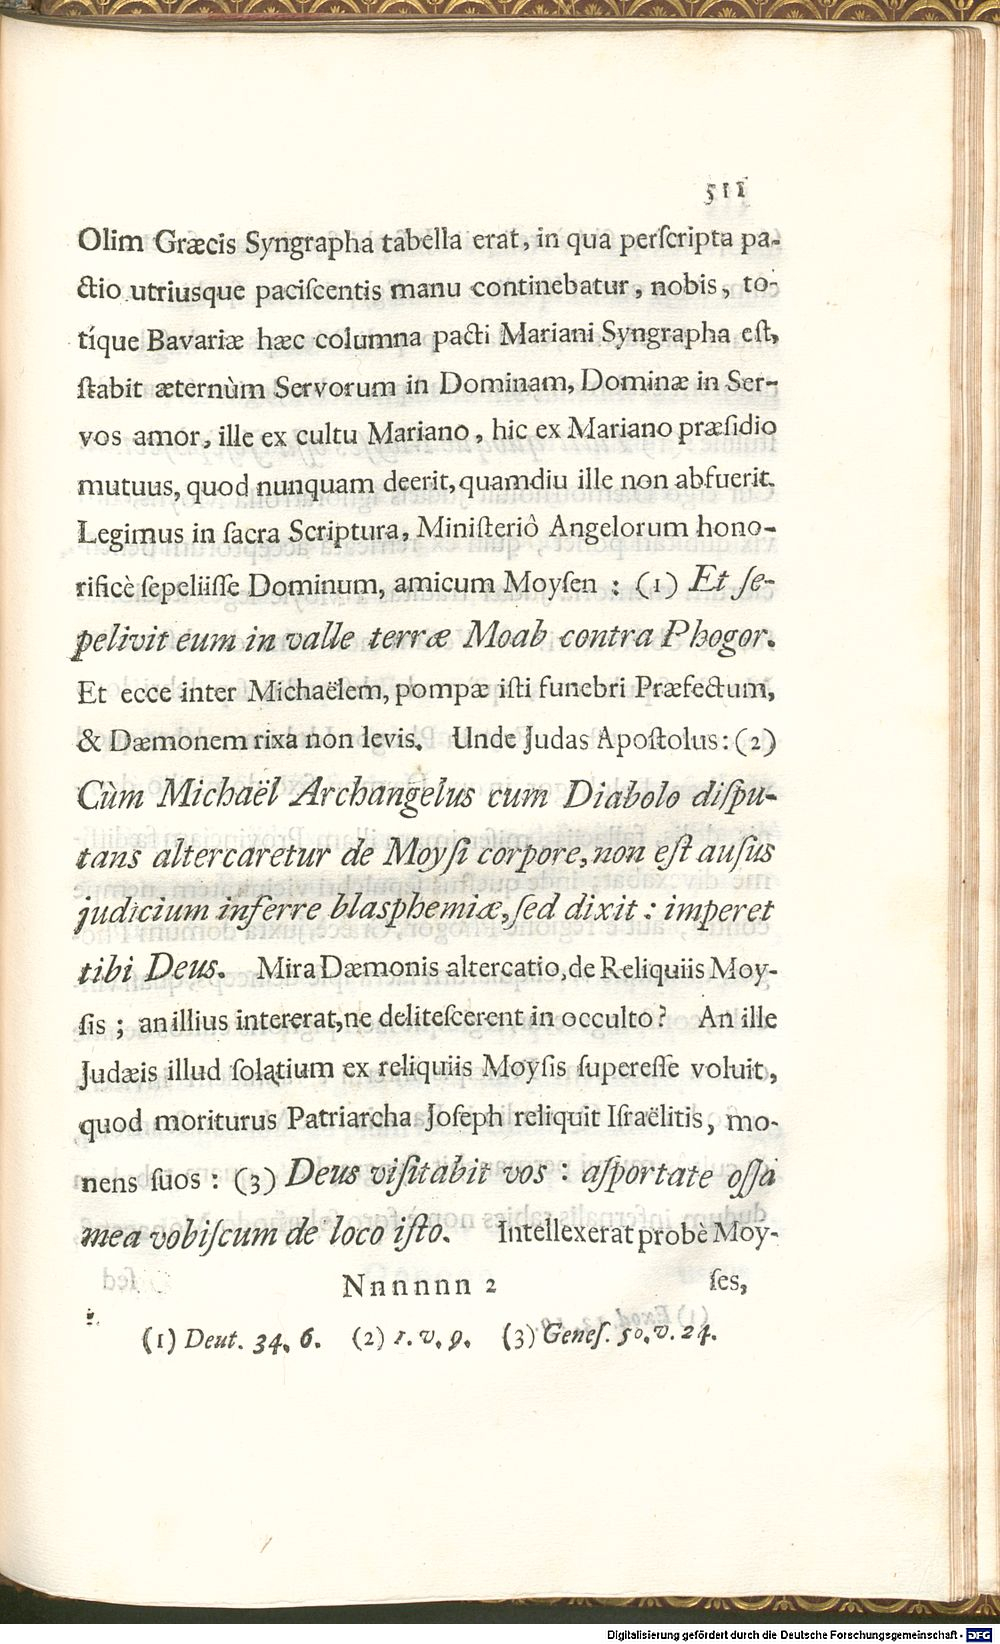 511
Olim Græcis Syngrapha tabella erat, in qua perſcripta pa-
ctio utriusque paciſcentis manu continebatur, nobis, to-
tíque Bavariæ hæc columna pacti Mariani Syngrapha eſt,
ſtabit æternùm Servorum in Dominam, Dominæ in Ser-
vos amor, ille ex cultu Mariano, hic ex Mariano præſidio
mutuus, quod nunquam deerit, quamdiu ille non abfuerit.
Legimus in ſacra Scriptura, Miniſteriô Angelorum hono-
rificè ſepeliiſſe Dominum, amicum Moyſen : (1) Et ſe-
pelivit eum in valle terræ Moab contra Phogor.
Et ecce inter Michaëlem, pompæ iſti funebri Præfectum,
& Dæmonem rixa non levis. Unde Judas Apoſtolus: (2)
Cùm Michaël Archangelus cum Diabolo diſpu-
tans altercaretur de Moyſi corpore, non eſt auſus
judicium inferre blasphemiæ, ſed dixit : imperet
tibi Deus. Mira Dæmonis altercatio, de Reliquiis Moy-
ſis ; an illius intererat, ne deliteſcerent in occulto? An ille
Judæis illud ſolatium ex reliquiis Moyſis ſupereſſe voluit,
quod moriturus Patriarcha Joſeph reliquit Iſraëlitis, mo-
nens ſuos : (3) Deus viſitabit vos : aſportate oſſa
mea vobiſcum de loco iſto. Intellexerat probè Moy-
Nnnnnn 2 ſes,
(1) Deut. 34. 6. (2) 1. v. 9. (3) Geneſ. 50. v. 24.
Digitalisierung gefördert durch die Deutsche Forschungsgemeinschaft - DFG